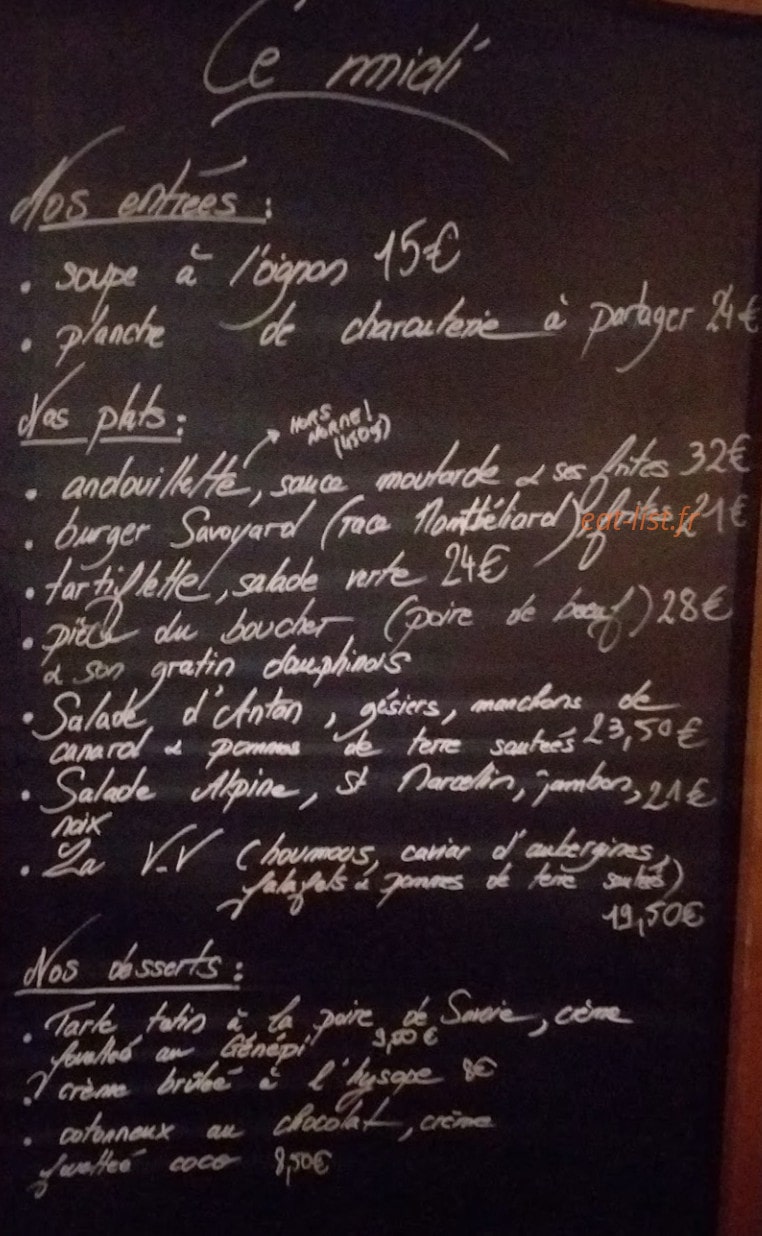 Ce midi
Nos entrées :
• soupe à l'oignon 15€
• planche de charcuterie à partager 24€
Nos plats :
HORS
NORME!
(450g)
• andouillette, sauce moutarde & ses frites 32€
• burger Savoyard (race Montbéliard) frites 21€
eat-list.fr
• tartiflette, salade verte 24€
• pièce du boucher (poire de boeuf) 28€
& son gratin dauphinois
• Salade d'Anton, gésiers, manchons de
canard & pommes de terre sautées 23,50€
• Salade Alpine, St Marcellin, jambon, 21€
noix
• La V.V (houmous, caviar d'aubergines,
falafels & pommes de terre sautées)
19,50€
Nos desserts :
• Tarte tatin à la poire de Savoie, crème
fouettée au Génépi 9,00€
• crème brûlée à l'hysope 8€
• cotonneux au chocolat, crème
fouettée coco 8,50€